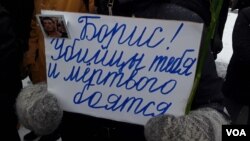 Борис!
Убийцы тебя
и мёртвого
боятся
VOA